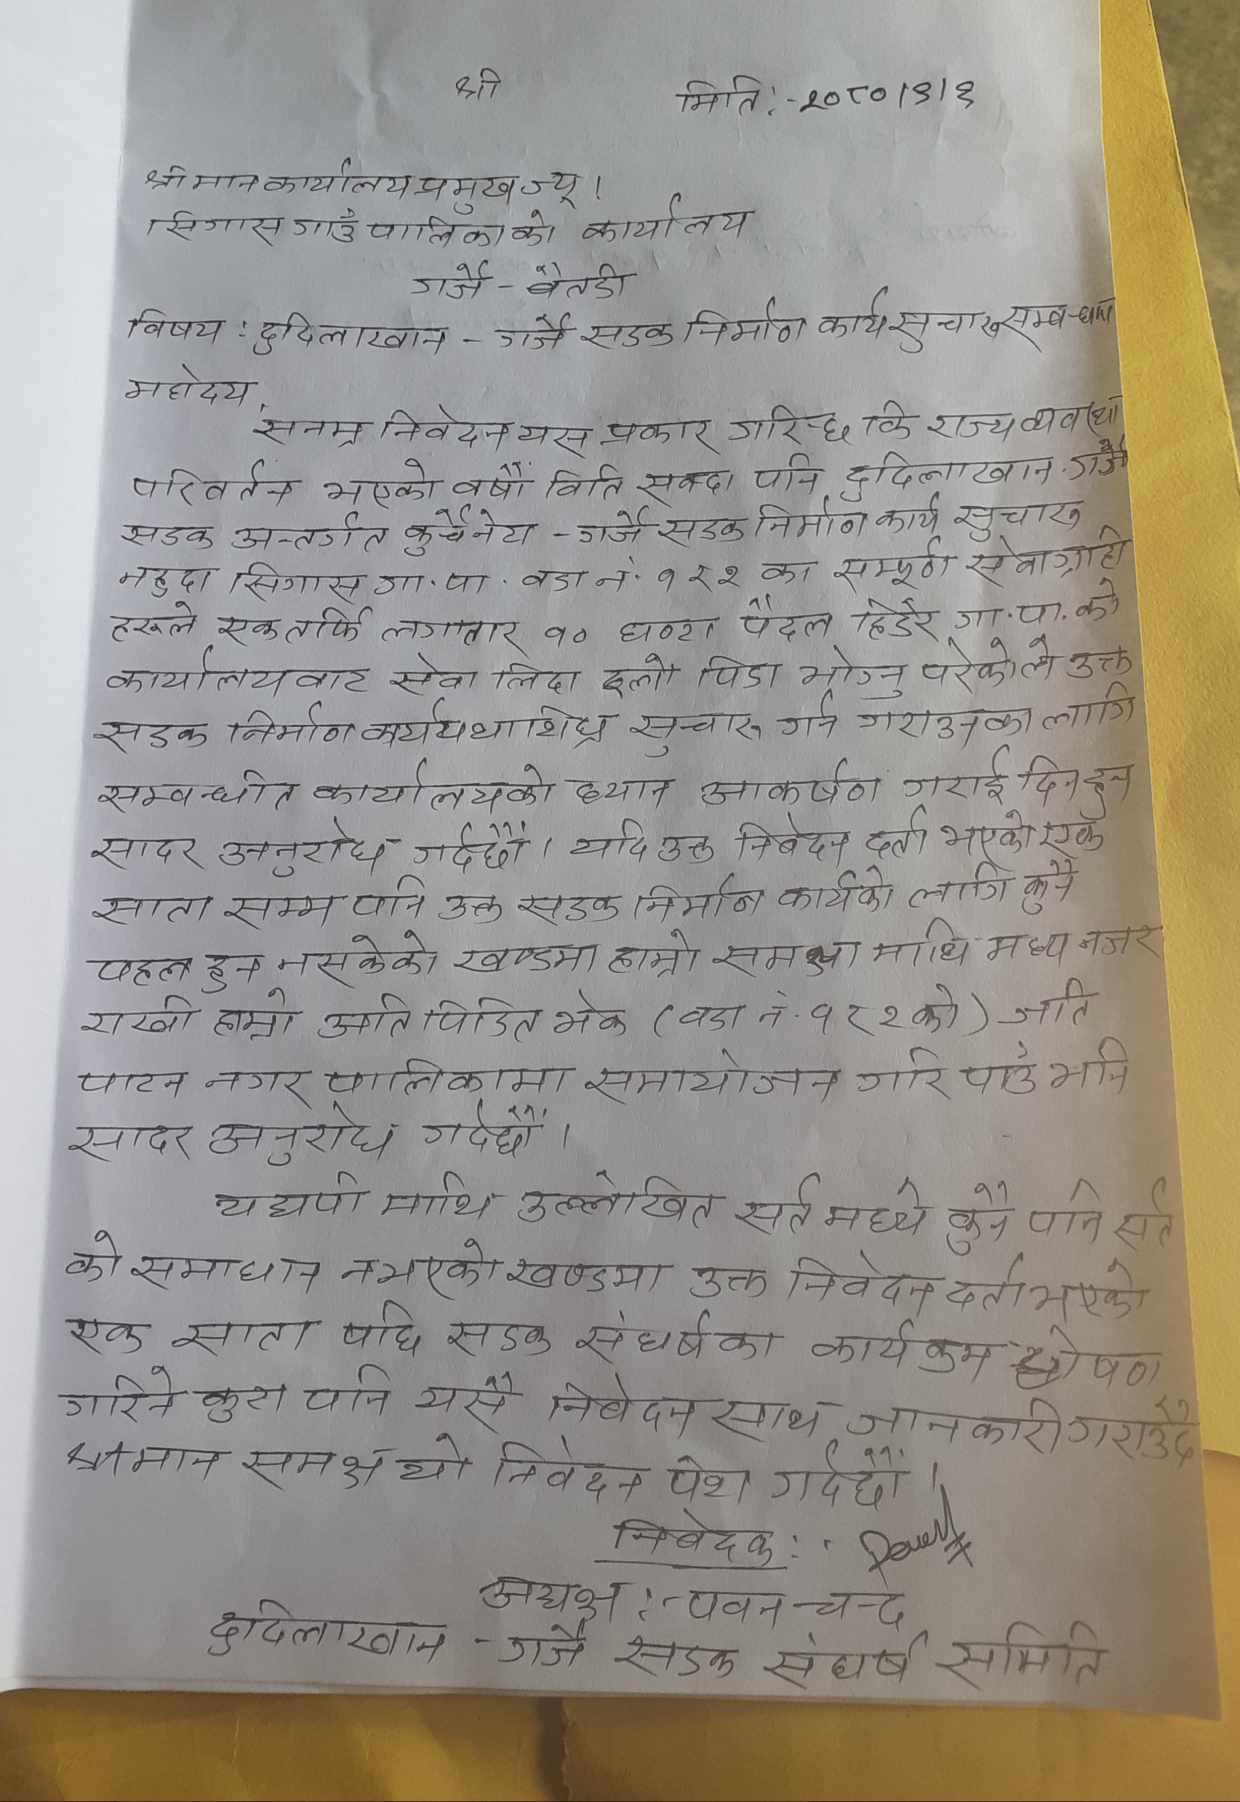 श्री
मिति:-२०८०।९।९
श्रीमान कार्यालय प्रमुख ज्यू!
सिगास गाउँपालिकाको कार्यालय
गर्जै - बैतडी
विषय : दुदिलाखान - गर्जै सडक निर्माण कार्य सुचारु सम्बन्धमा
महोदय,
सनम्र निवेदन यस प्रकार गरिन्छ कि राज्य व्यवस्था
परिवर्तन भएको वर्षौ विति सक्दा पनि दुदिलाखान-गर्जै
सडक अन्तर्गत कुर्चैनेटा - गर्जै सडक निर्माण कार्य सुचारु
नहुदा सिगास गा.पा. वडा नं. १ र २ का सम्पूर्ण सेवाग्राही
हरूले एकतर्फि लगातार १० घण्टा पैदल हिडेरै गा.पा.को
कार्यालयवाट सेवा लिदा ढुलो पिडा भोग्नु परेकोले उक्त
सडक निर्माण कार्य यथाशिघ्र सुचारु गर्न गराउनका लागि
सम्वन्धीत कार्यालयको ध्यान आकर्षण गराई दिनहुन
सादर अनुरोध गर्दछौं। यदि उक्त निवेदन दर्ता भएको एक
साता सम्म पनि उक्त सडक निर्माण कार्यको लागि कुनै
पहल हुन नसकेको खण्डमा हाम्रो समस्या माथि मध्य नजर
राखी हाम्रो अति पिडित भेक (वडा नं. १ र २ को) जति
पाटन नगरपालिकामा समायोजन गरि पाउँ भनि
सादर अनुरोध गर्दछौं।
यद्यपी माथि उल्लेखित सर्त मध्ये कुनै पनि सर्त
को समाधान नभएको खण्डमा उक्त निवेदन दर्ता भएको
एक साता पछि सडक संघर्षका कार्यक्रम घोषणा
गरिने कुरा पनि यसै निवेदन साथ जानकारी गराउँदै
श्रीमान समक्ष यो निवेदन पेश गर्दछौं।
निवेदक :
अध्यक्ष :- पवन चन्द
दुदिलाखान - गर्जै सडक संघर्ष समिति